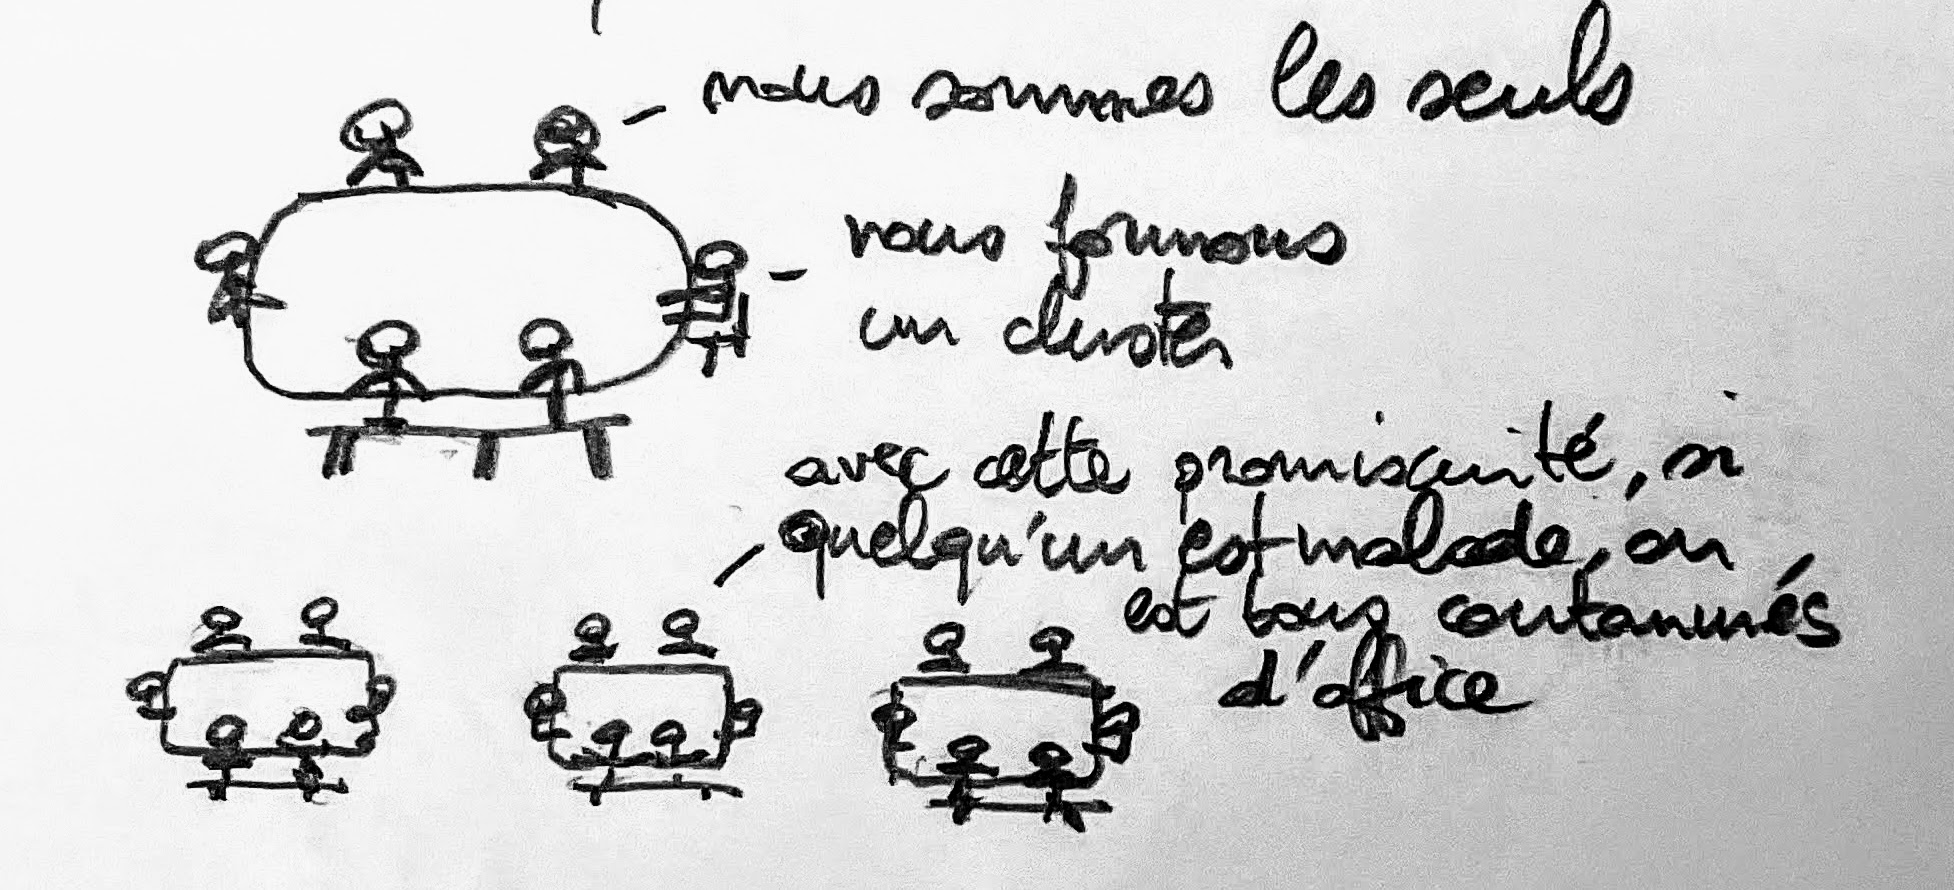 nous sommes les seuls
nous formons
un cluster
avec cette promiscuité, si
quelqu'un est malade, on
est tous contaminés
d'office